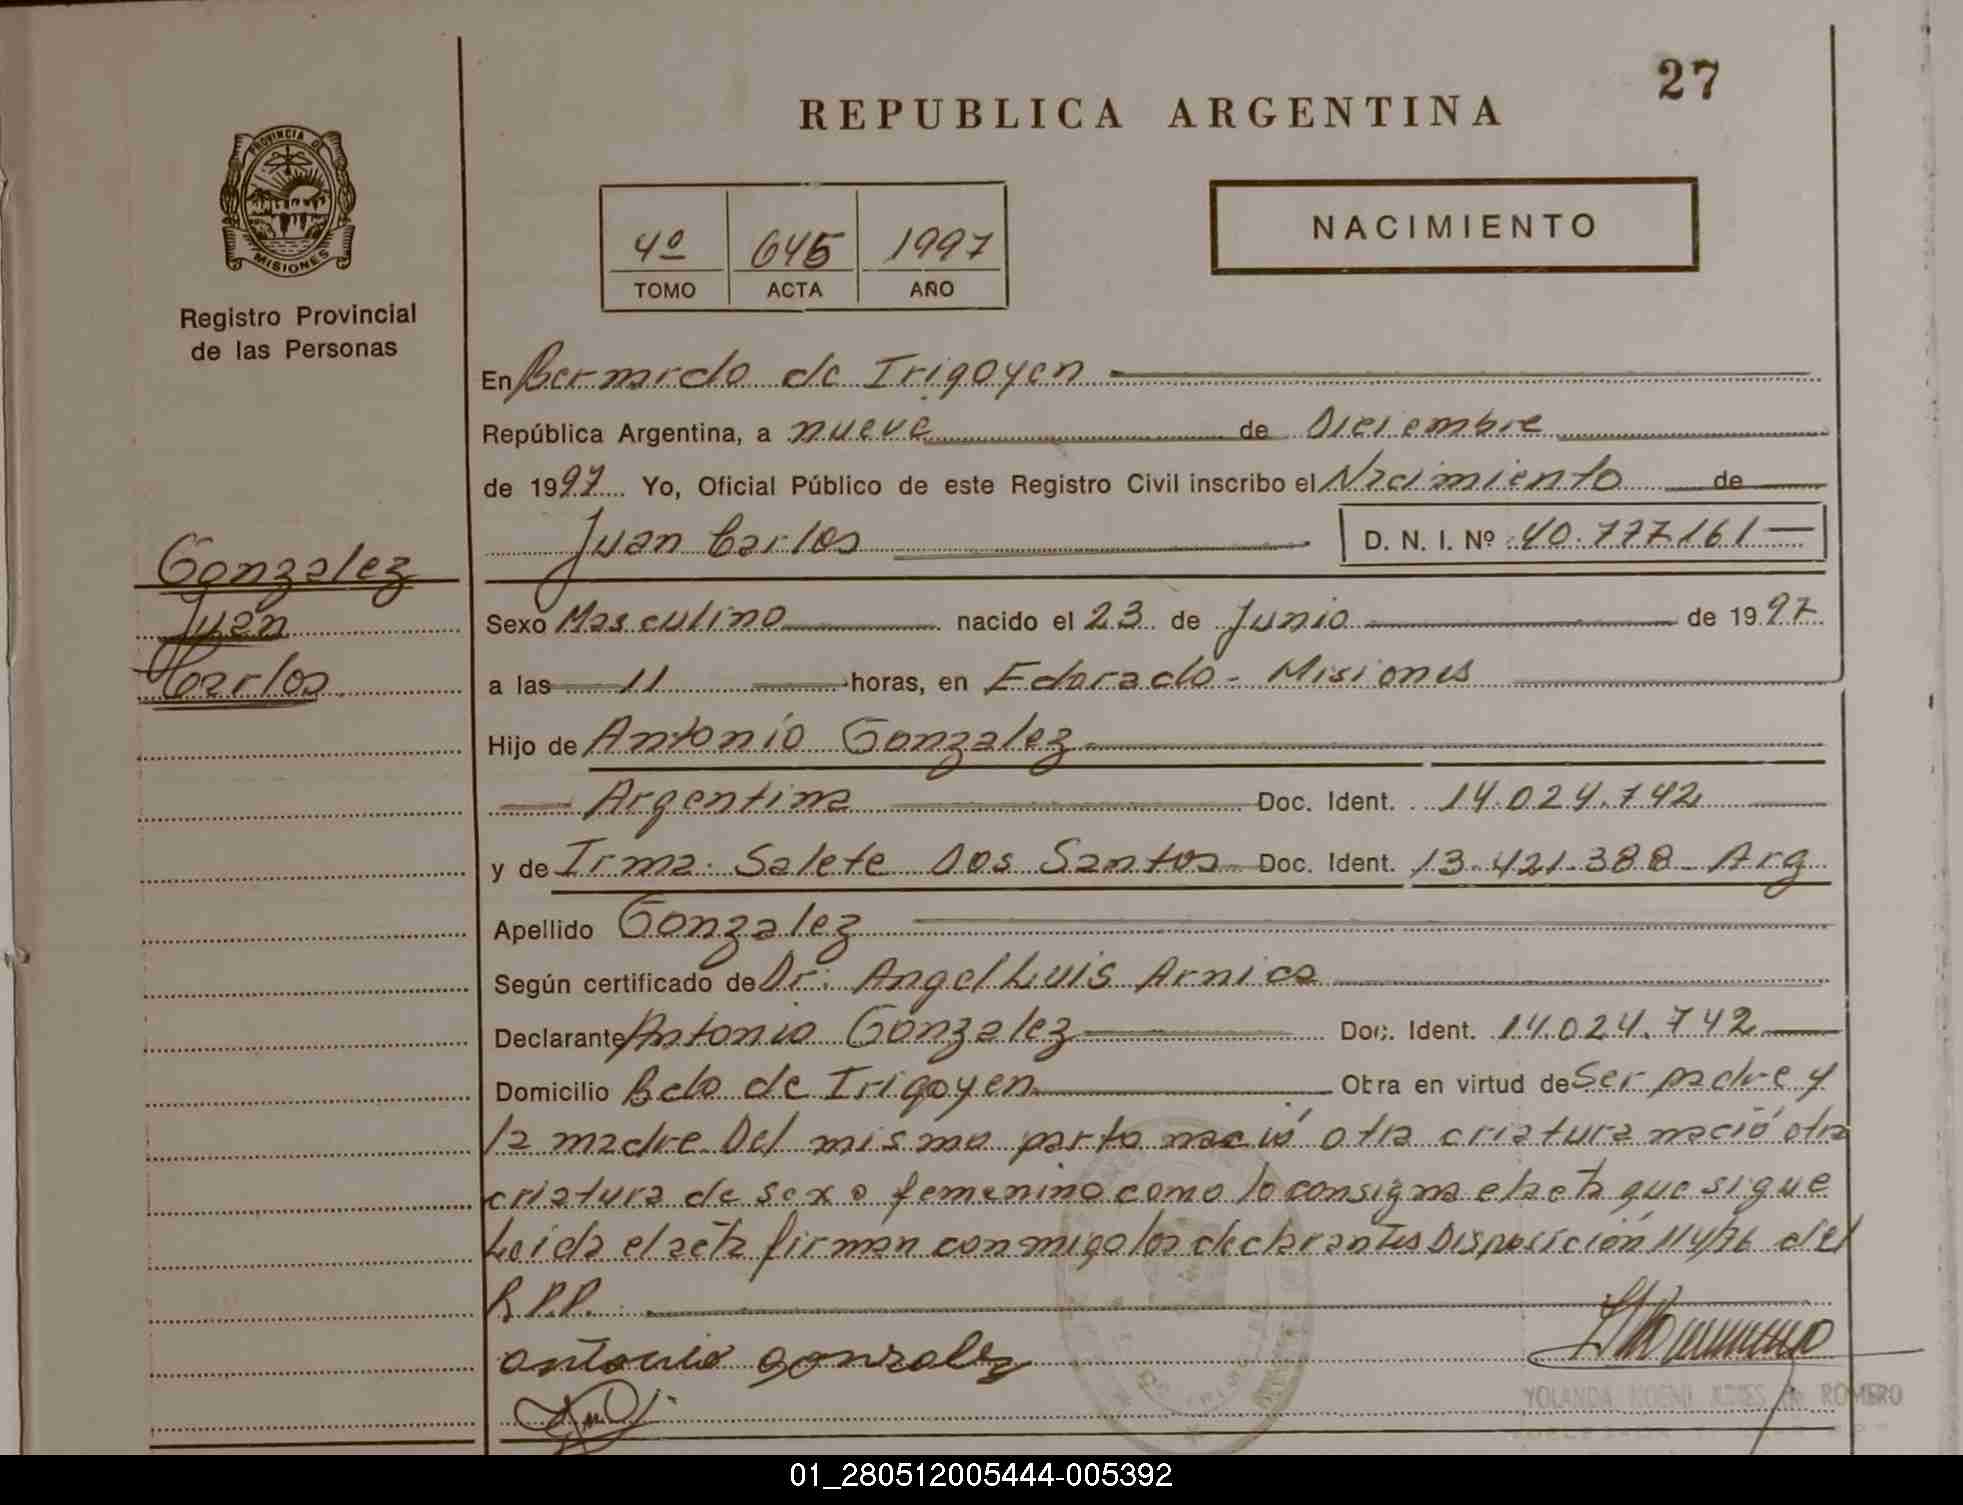 27
REPUBLICA ARGENTINA
PROVINCIA DE
MISIONES
Registro Provincial
de las Personas
4º 645 1997
TOMO ACTA AÑO
NACIMIENTO
En Bernardo de Irigoyen
República Argentina, a nueve de Diciembre
de 1997 Yo, Oficial Público de este Registro Civil inscribo el Nacimiento de
Juan Carlos D. N. I. Nº 40.777.161
Gonzalez
Juan
Carlos
Sexo Masculino nacido el 23 de Junio de 1997
a las 11 horas, en Edorado - Misiones
Hijo de Antonio Gonzalez
Argentina Doc. Ident. 14.024.742
y de Irma Salete Dos Santos Doc. Ident. 13.421.388 - Arg
Apellido Gonzalez
Según certificado de Dr. Angel Luis Arnica
Declarante Antonio Gonzalez Doc. Ident. 14.024.742
Domicilio Bdo de Irigoyen Obra en virtud de Ser padre y
la madre. Del mismo parto nació otra criatura nació otra
criatura de sexo femenino como lo consigna el acta que sigue
Leida el acta firman conmigo los declarantes Disposición 114/76 del
R.P.P.
antonio gonzalez
YOLANDA NOEMI de ROMERO
01_280512005444-005392